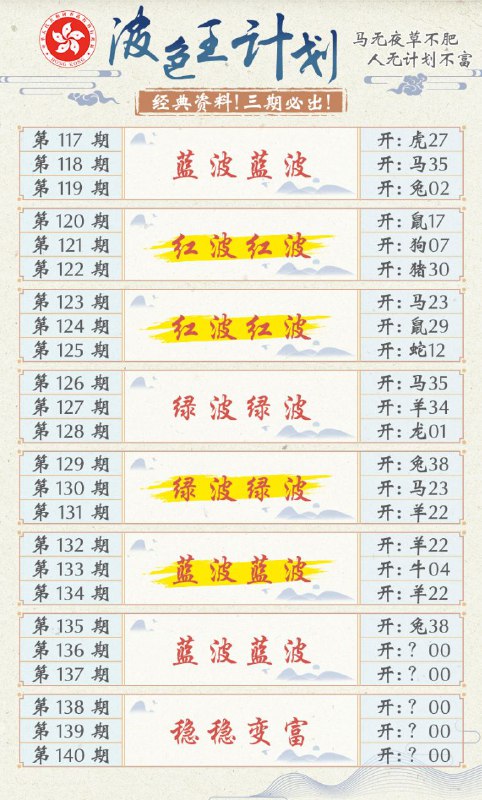 波色王计划
马无夜草不肥
人无计划不富
HONG KONG
经典资料!三期必出!
第 117 期
第 118 期
第 119 期
蓝波蓝波
开:虎27
开:马35
开:兔02
第 120 期
第 121 期
第 122 期
红波红波
开:鼠17
开:狗07
开:猪30
第 123 期
第 124 期
第 125 期
红波红波
开:马23
开:鼠29
开:蛇12
第 126 期
第 127 期
第 128 期
绿波绿波
开:马35
开:羊34
开:龙01
第 129 期
第 130 期
第 131 期
绿波绿波
开:兔38
开:马23
开:羊22
第 132 期
第 133 期
第 134 期
蓝波蓝波
开:羊22
开:牛04
开:羊22
第 135 期
第 136 期
第 137 期
蓝波蓝波
开:兔38
开:? 00
开:? 00
第 138 期
第 139 期
第 140 期
稳稳变富
开:? 00
开:? 00
开:? 00